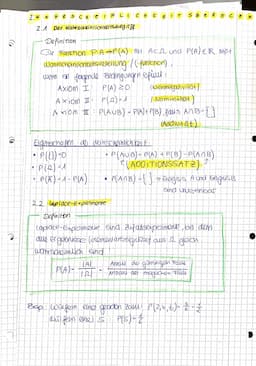 2.1 Der Wahrscheinlichkeitsbegriff
Definition
Die Funktion P: A→P(A) mit A⊂Ω und P(A)∈ℝ heißt
Wahrscheinlichkeitsverteilung /(-funktion),
wenn sie folgende Bedingungen erfüllt:
Axiom I P(A) ≥ 0
Axiom II P(Ω) = 1
Axiom III P(A∪B) = P(A) + P(B), falls A∩B = { }
(Additivität)
Eigenschaften der Wahrscheinlichkeit:
• P({ }) = 0 • P(A∪B) = P(A) + P(B) - P(A∩B)
• P(Ω) = 1 (ADDITIONSSATZ)
• P(A̅) = 1 - P(A) • P(A∩B) = { } → Ereignis A und Ereignis B
sind unvereinbar
2.2 Laplace-Experimente
Definition
Laplace-Experimente sind Zufallsexperimente, bei denen
alle Ergebnisse aus Ω gleich
wahrscheinlich sind
P(A) = |A| / |Ω| = Anzahl der günstigen Fälle / Anzahl der möglichen Fälle
Bsp. Würfeln einer geraden Zahl: P(2,4,6) = 3/6 = 1/2
Würfeln einer 5: P(5) = 1/6